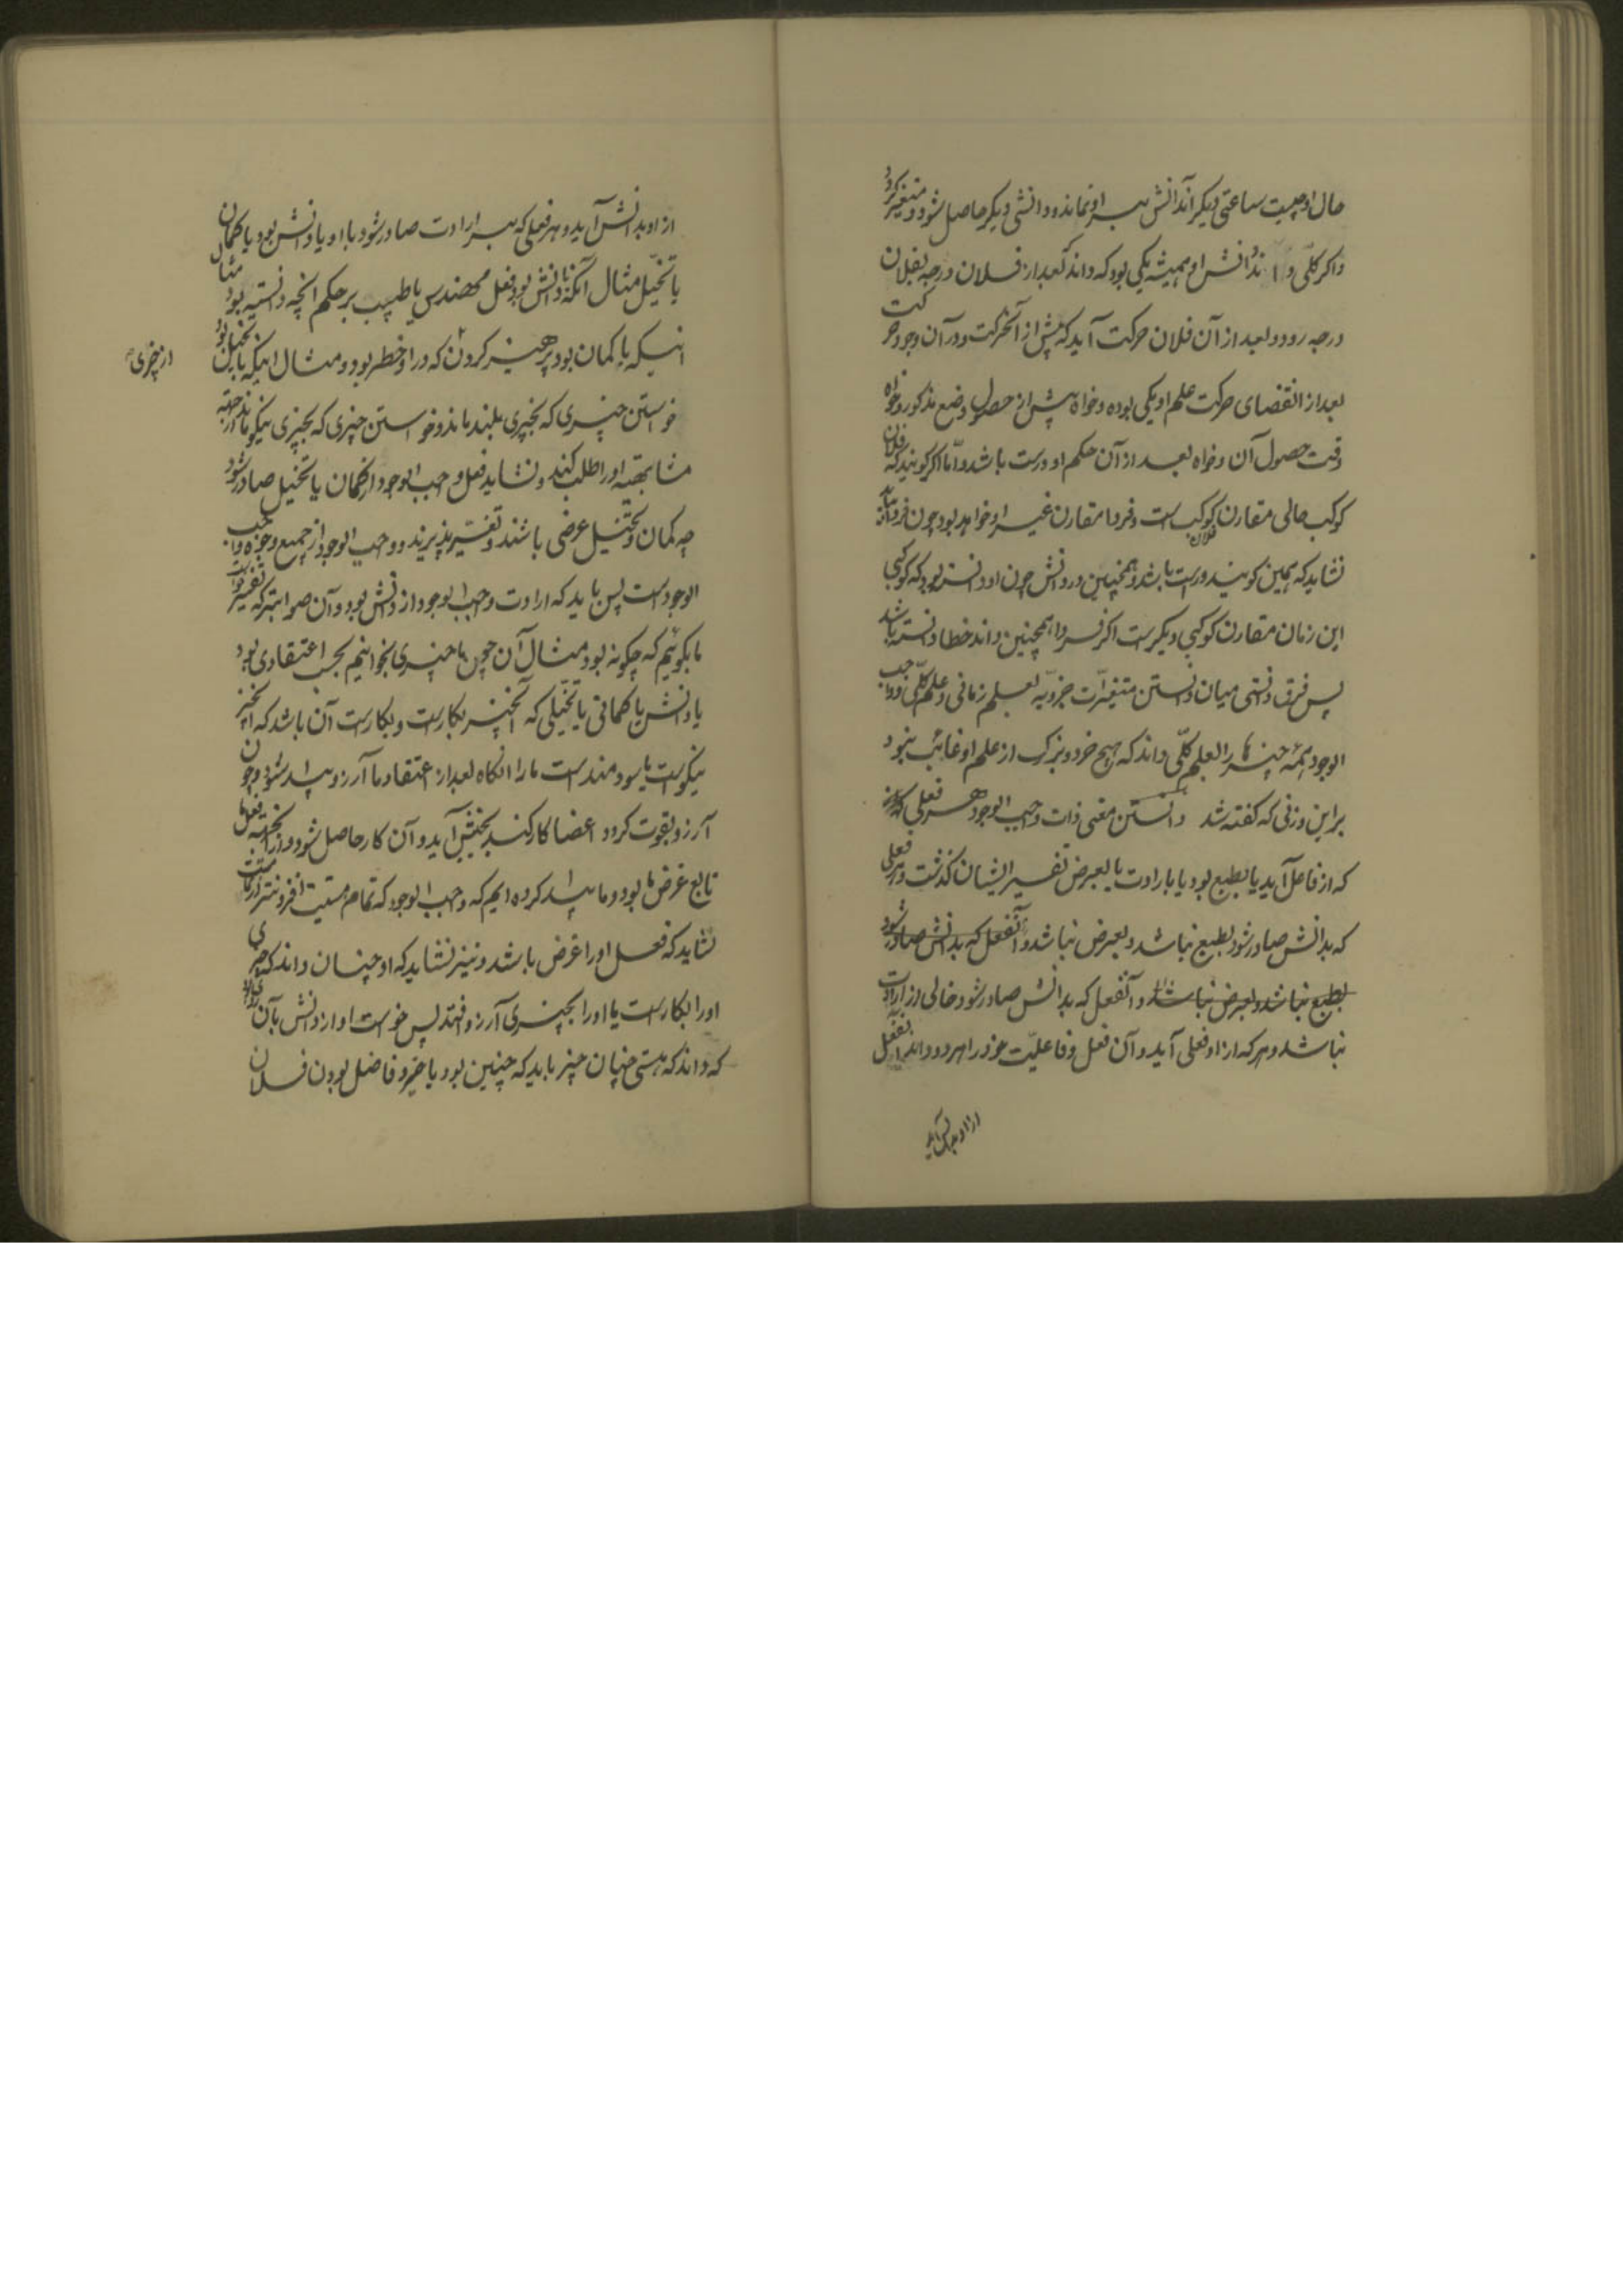 حال او چیست ساعتی دیگر آن دانش بسر او نماند و دانشی دیگر حاصل شود و متغیر گردد
و اگر کلّی داند دانش او همیشه یکی بود که داند که بعد از فلان درجه بفلان
درجه رود و بعد از آن فلان حرکت آید که پیش از آنحرکت و در آن وجود حرکت
بعد از انقضای حرکت علم او یکی بوده و خواه پیش از حصول وضع مذکور و خواه
وقت حصول آن و خواه بعد از آن حکم او درست باشد و امّا اگر گویند که فلان
کوکب حالی مقارن فلان کوکب است و فردا مقارن غیر او خواهد بود چون فردا آید
نشاید که همین گویند و درست باشد و همچنین در دانش چون او دانسته بود که کوکبی
این زمان مقارن کوکبی دیگرست اگر فردا همچنین داند خطا دانسته باشد
پس فرق دانستی میان دانستن متغیّرات جزویّه بعلم زمانی و علم کلّی و واجب
الوجود همه چیزها را بعلم کلّی داند که هیچ خرد و بزرگ از علم او غائب نبود
براین وزنی که گفته شد دانستن معنی ذات واجب الوجود هر فعلی که
که از فاعل آید یا بطبع بود یا بارادت یا بعرض تفسیر ایشان گذشت و هر فعلی
که بدانش صادر شود بطبع نباشد و بعرض نباشد و آنفعل که بدانش صادر شود
بطبع نباشد و بعرض نباشد و آنفعل که بدانش صادر شود خالی از ارادت
نباشد و هر که از او فعلی آید و آن فعل و فاعلیّت خود را هر دو داند آنفعل
از او بدانش آید
از او بدانش آید و هر فعلی که بسر ارادت صادر شود یا او با دانش بود یا با گمان
یا تخیّل مثال آنکه با دانش بود فعل مهندس یا طبیب بر حکم آنچه دانسته بود مثال
اینکه با گمان بود پرهیز کردن که در او خطر بود و مثال اینکه با تخیّل بود
از چیزی
خواستن چیزی که بچیزی بلند ماند و خواستن چیزی که بچیزی نیکو ماند از جهة
مشابهتیه او را طلب کند و نشاید فعل واجب الوجود از گمان یا تخیل صادر شود
چه گمان و تخیّل عرضی باشند و تغیّر پذیرند و واجب الوجود از جمیع وجوه واجب
الوجودست پس باید که ارادت واجب الوجود از دانش بود و آن صوابتر که تفسیر
ما بگوئیم که چگونه بود و مثال آن چون ما چیزی بخواهیم بحسب اعتقادی بود
یا دانش یا گمانی یا تخیّلی که آنچیز بکارست و بکارست آن باشد که آنچیز
نیکوست یا سودمندست ما را آنگاه بعد از اعتقاد ما آرزو پیدا شود و چون
آرزو بقوت گردد اعضا کار کند بجنبش آید و آن کار حاصل شود و از اینجهة فعل ما
تابع غرض ما بود و ما پیدا کرده ایم که واجب الوجود که تمام هستیست
نشاید که فعل او را غرض باشد و نیز نشاید که او چنان داند که چیزی
او را بکارست یا او را بچیزی آرزو افتد پس خواست او از دانش بآن
که داند که هستی چنان چیز باید که چنین بود با خیر و فاضل بودن فلان